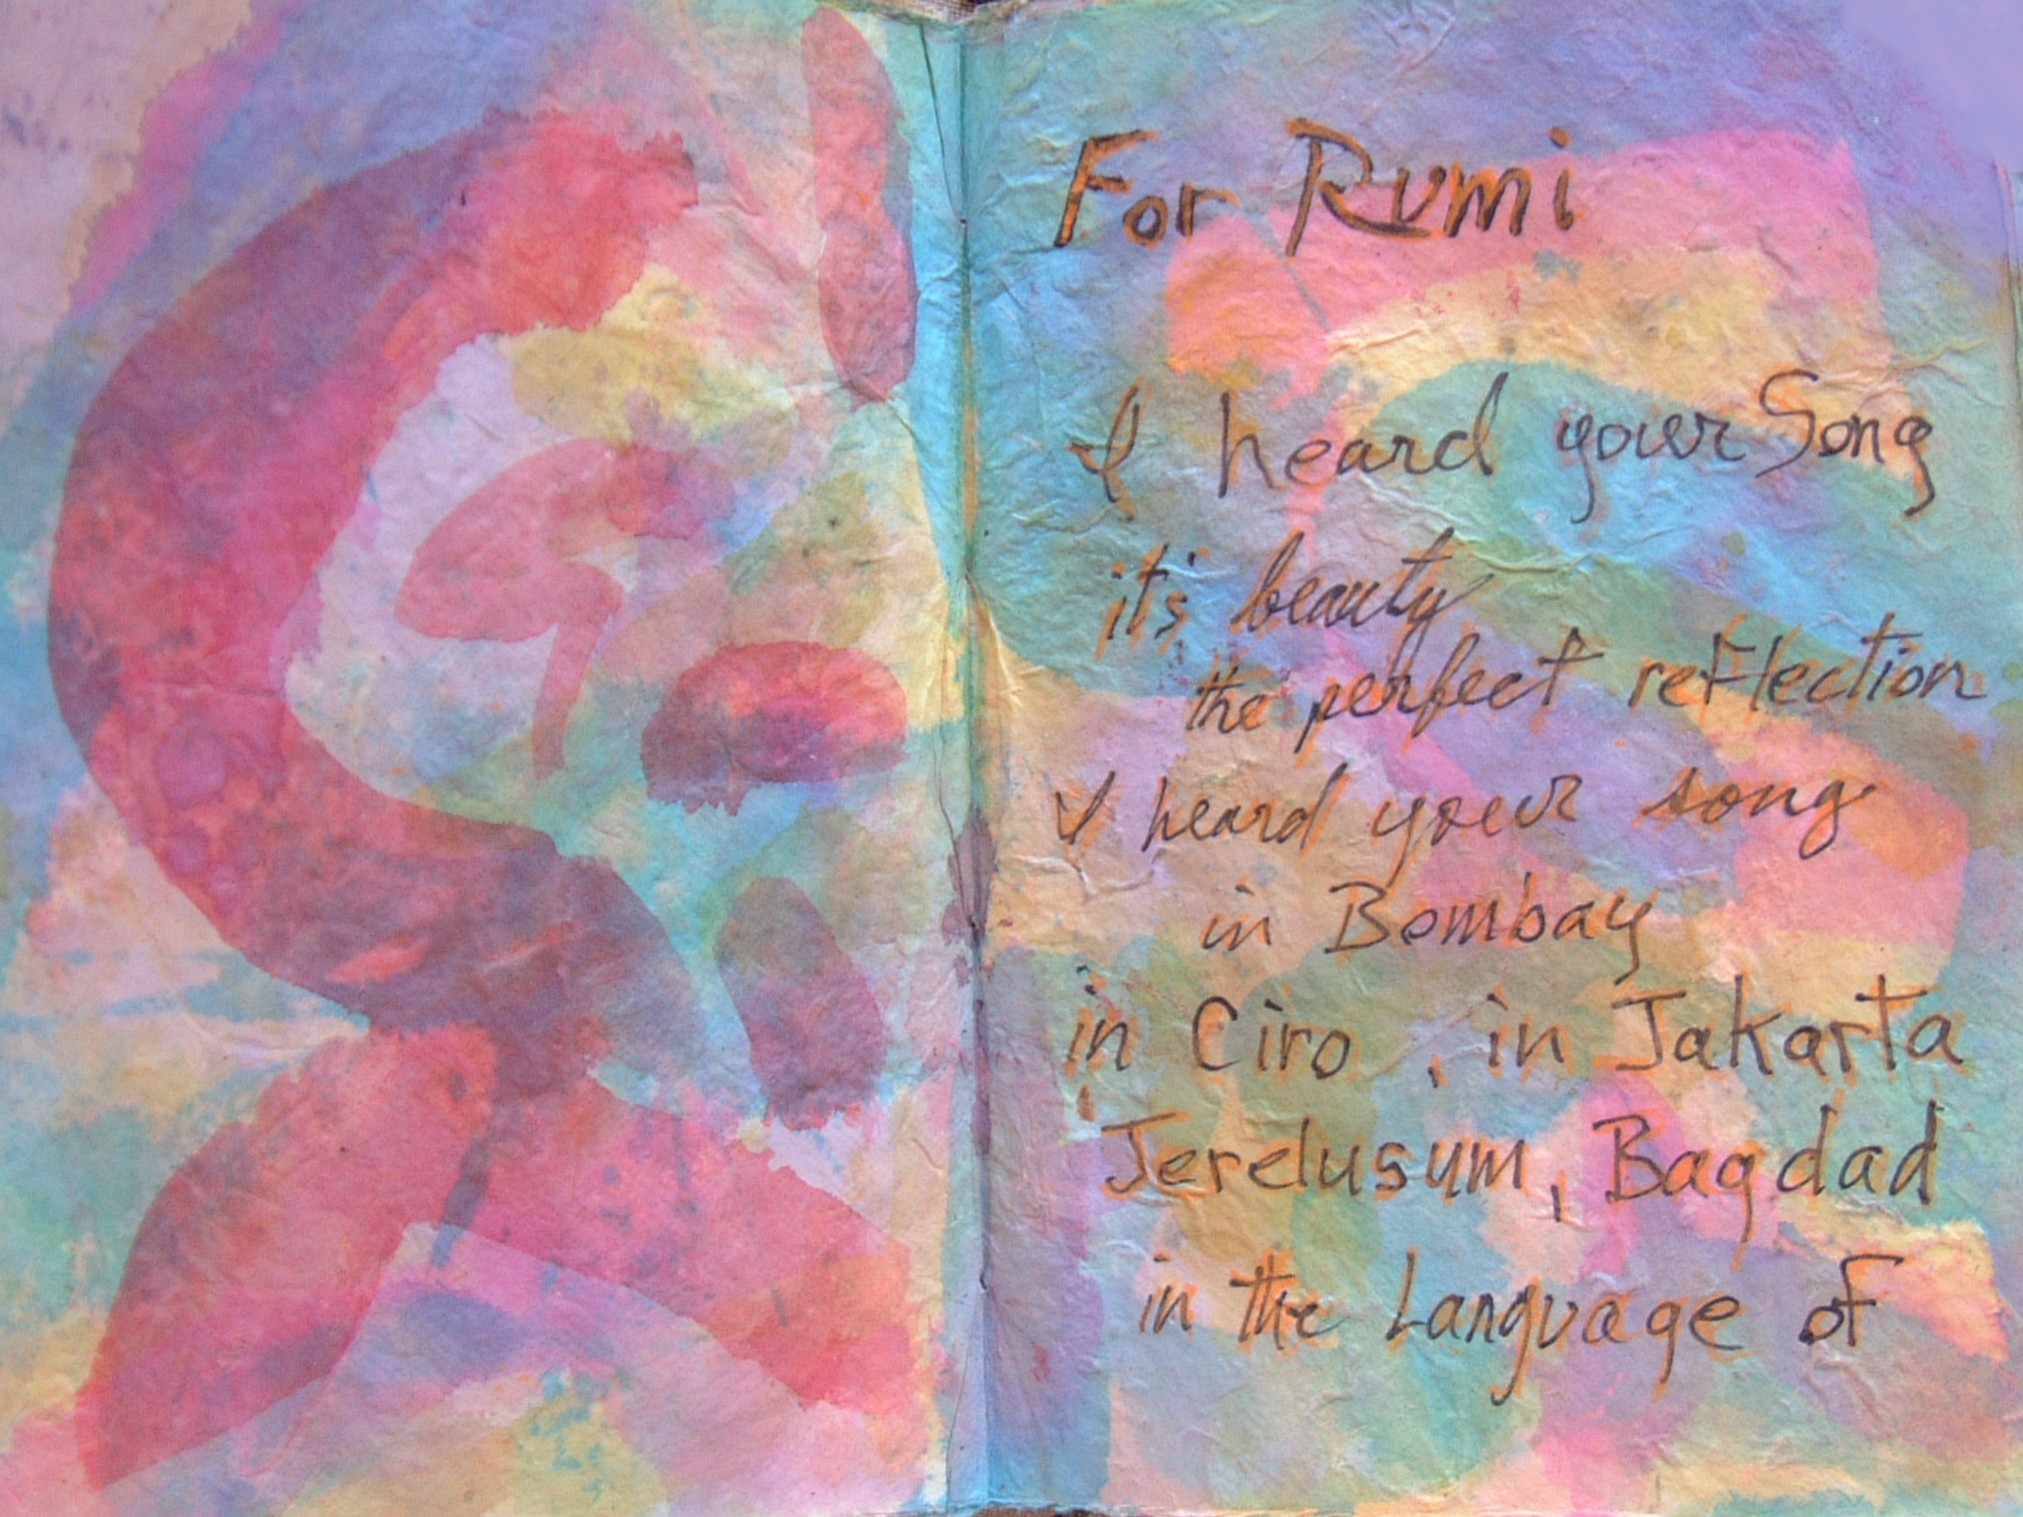 For Rumi
I heard your Song
it's beauty
the perfect reflection
I heard your song
in Bombay
in Ciro, in Jakarta
Jerelusum, Bagdad
in the Language of